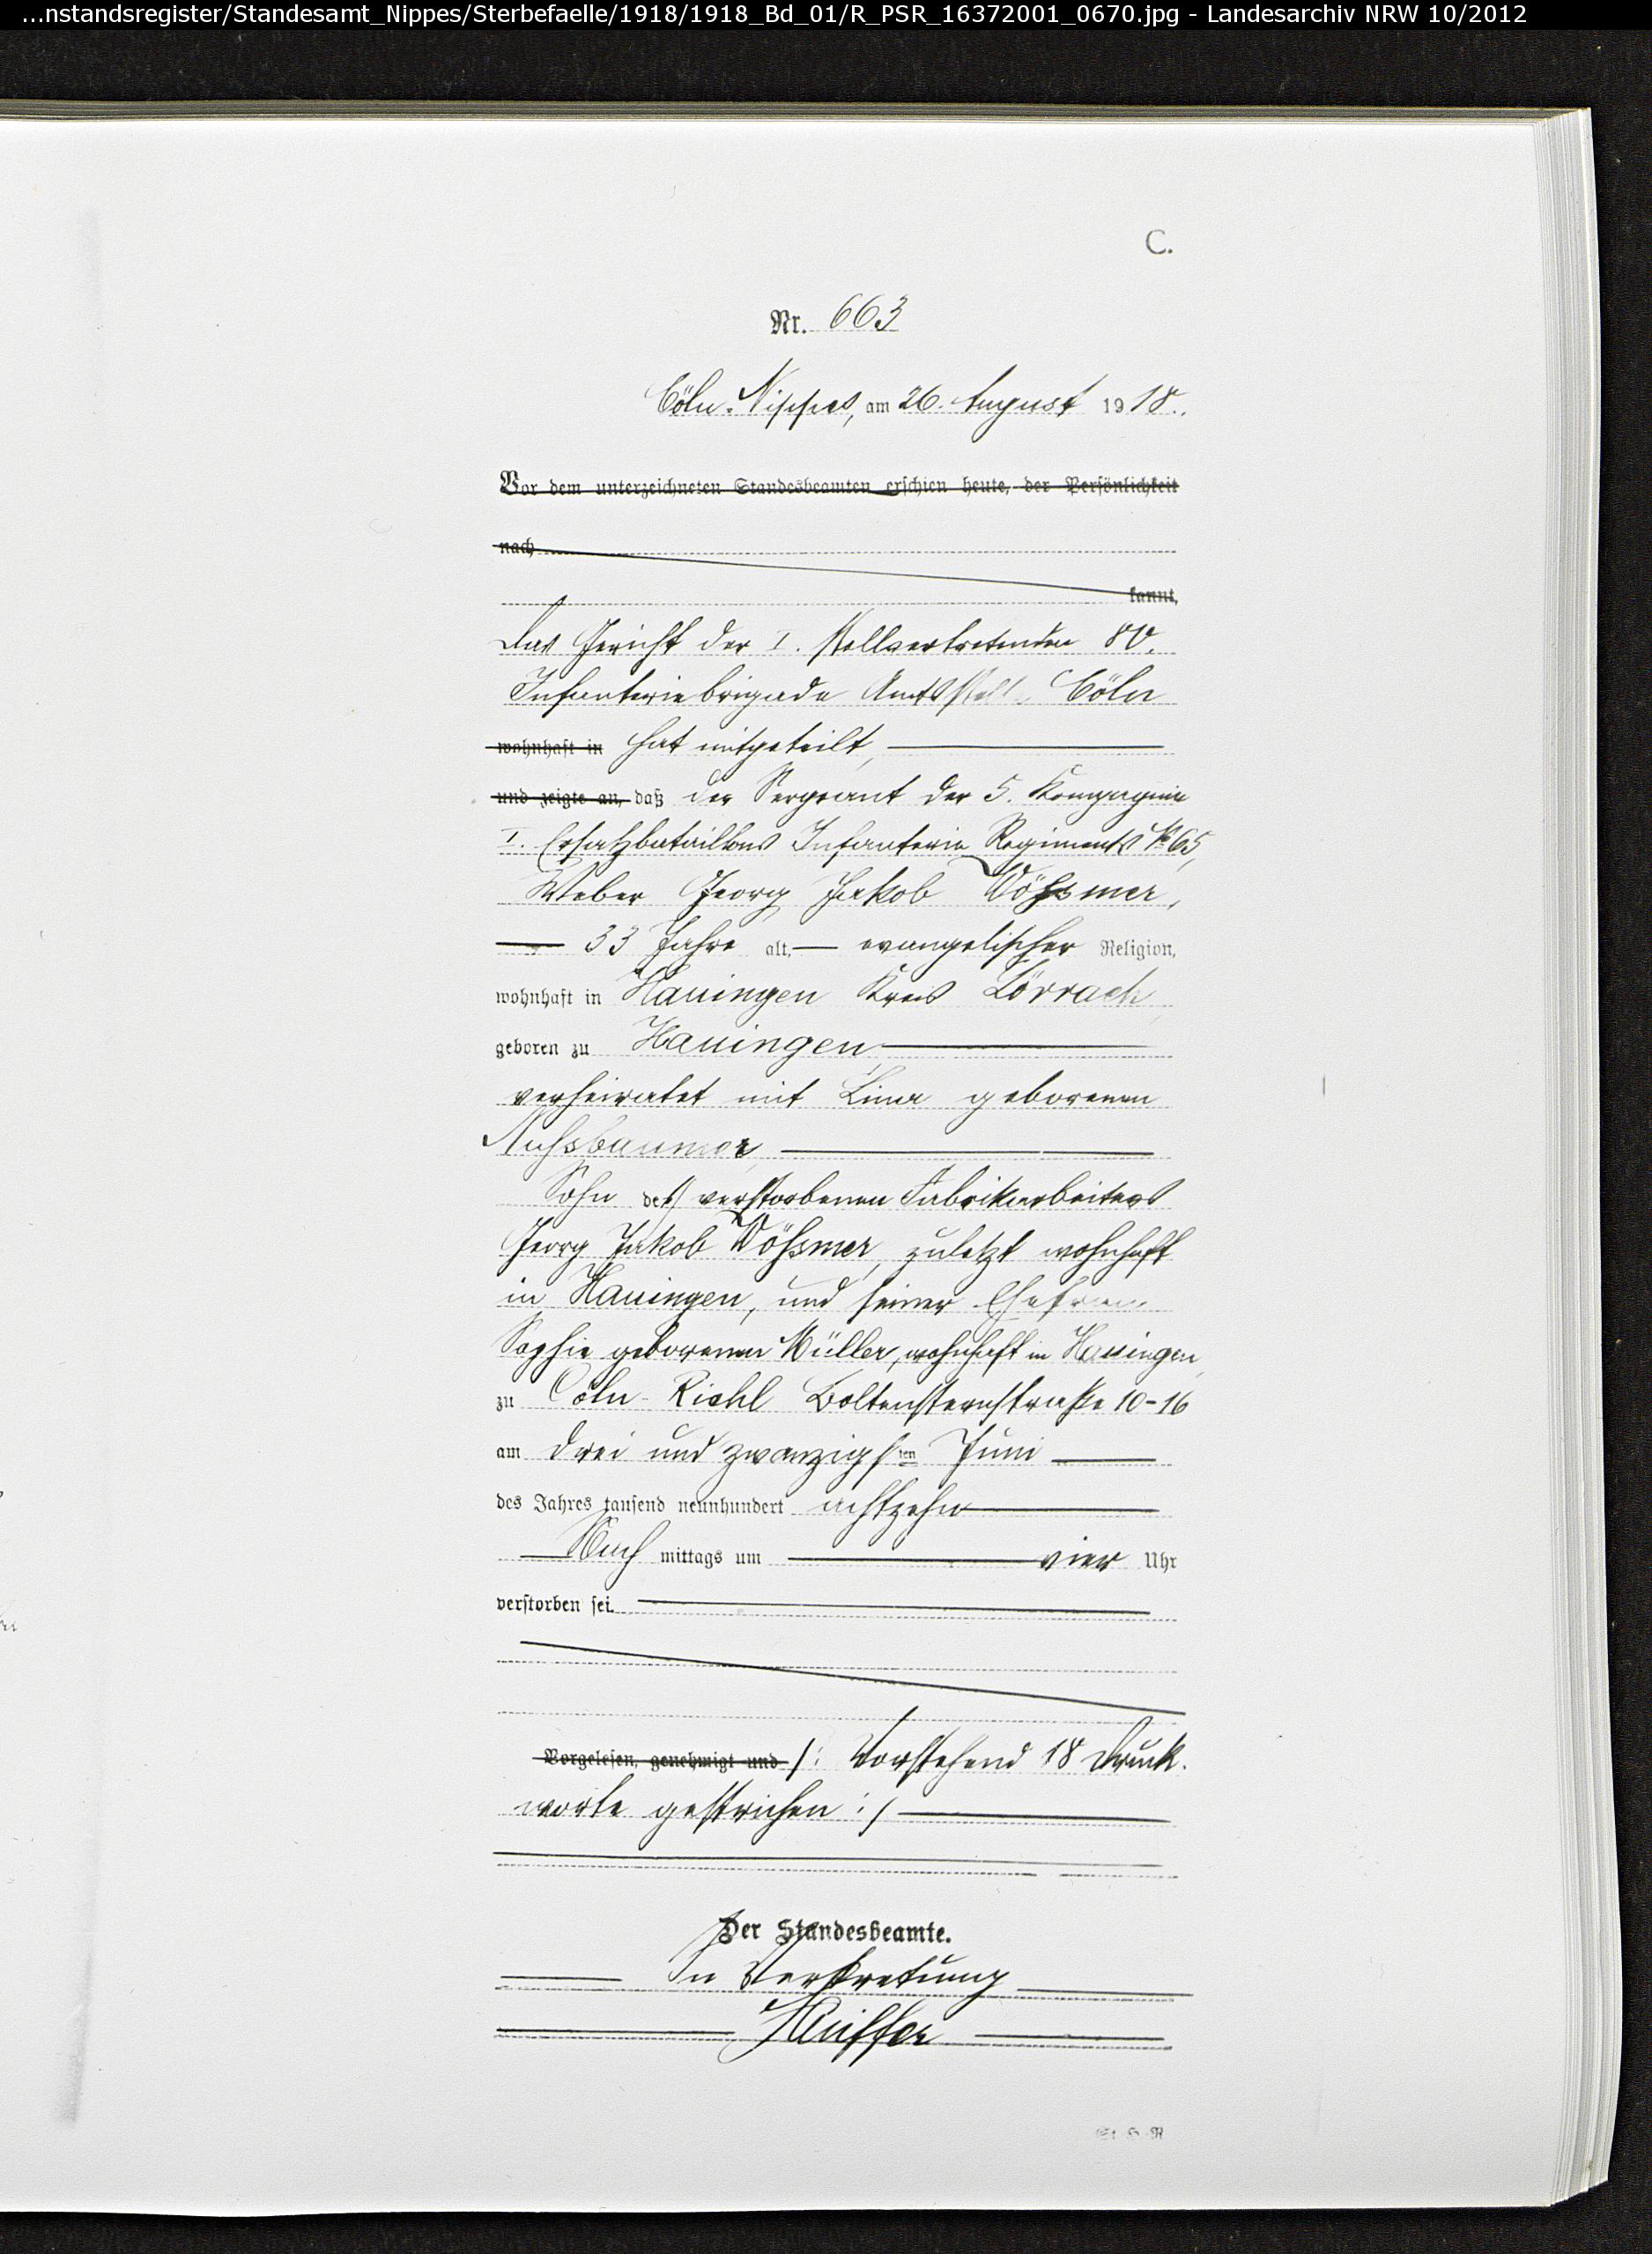 ...nstandsregister/Standesamt_Nippes/Sterbefaelle/1918/1918_Bd_01/R_PSR_16372001_0670.jpg - Landesarchiv NRW 10/2012
C.
Nr. 663
Cöln-Nippes, am 26. August 1918.
Vor dem unterzeichneten Standesbeamten erschien heute, der Persönlichkeit
nach
kannt,
Das Gericht der I. stellvertretenden 80.
Infanteriebrigade Amtsstelle Cöln
wohnhaft in hat mitgeteilt,
und zeigte an, daß der Sergeant der 5. Kompagnie
I. Ersatzbataillons Infanterie Regiments № 65,
Weber Georg Jakob Wößmer,
33 Jahre alt, evangelischer Religion,
wohnhaft in Hauingen Kreis Lörrach
geboren zu Hauingen
verheiratet mit Lina geborenen
Nußbaumer,
Sohn des verstorbenen Fabrikarbeiters
Georg Jakob Wößmer, zuletzt wohnhaft
in Hauingen, und seiner Ehefrau
Sophie geborenen Müller, wohnhaft in Hauingen,
zu Cöln-Riehl Boltensternstraße 10-16
am drei und zwanzigsten Juni
des Jahres tausend neunhundert achtzehn
Nach mittags um vier Uhr
verstorben sei.
Vorgelesen, genehmigt und /: Vorstehend 18 Druck-
worte gestrichen :/
Der Standesbeamte.
In Vertretung